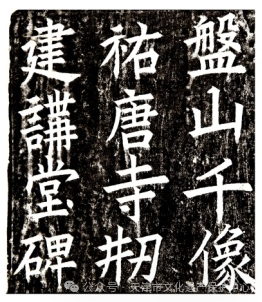 盤山千像
祐唐寺刱
建講堂碑
公众号 · 天津市文化遗产保护中心